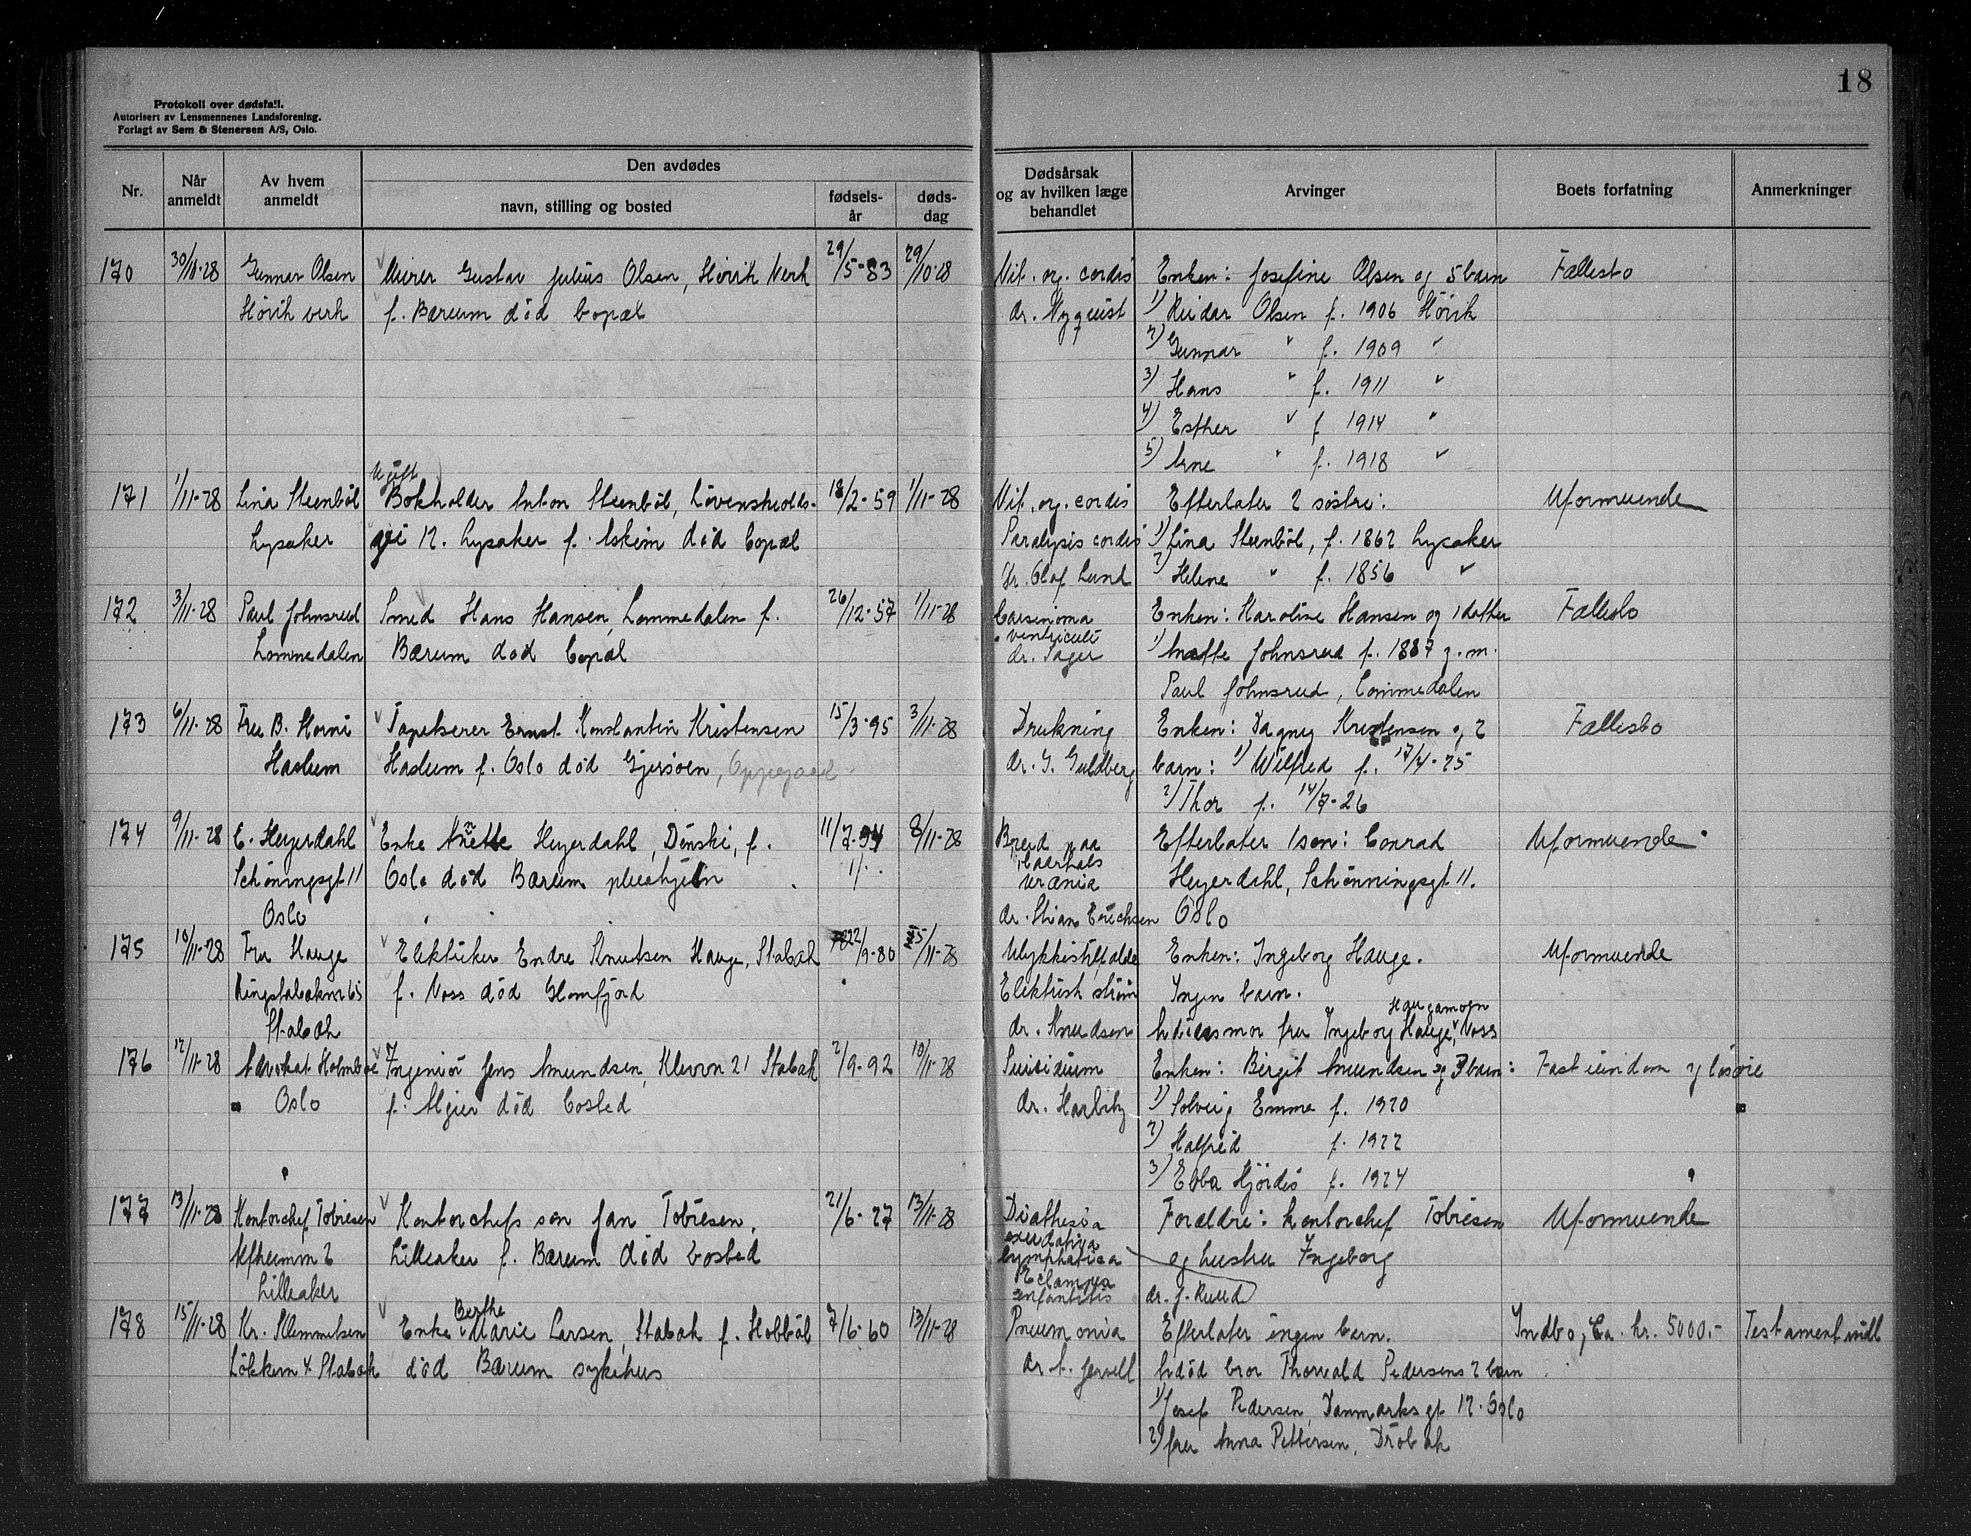 18
Protokoll over dødsfall.
Autorisert av Lensmennenes Landsforening.
Forlagt av Sem & Stenersen A/S, Oslo.
Nr.
Når anmeldt
Av hvem anmeldt
Den avdødes
navn, stilling og bosted
fødsels-år
døds-dag
Dødsårsak og av hvilken læge behandlet
Arvinger
Boets forfatning
Anmerkninger
170 30/10-28 Gunnar Olsen Murer Gustav Julius Olsen, Hövik Verk 29/5-83 29/10-28 Vit. org. cordis Enken: Josefine Olsen og 5 barn Fællesbo
Hövik verk f. Bærum död bopæl dr. Nyquist 1) Reidar Olsen f. 1906 Hövik
2) Gunnar " f. 1909 "
3) Hans " f. 1911 "
4) Esther " f. 1914 "
5) Arne " f. 1918 "
Ugift
171 1/11-28 Lina Steenböl Bokholder Anton Steenböl, Lövenskiolds- 18/2-59 1/11-28 Vit. org. cordis Efterlater 2 söstre: Uformuende
Lysaker vei 12. Lysaker f. Askim död bopæl Paralysis cordis 1) Lina Steenböl, f. 1862 Lysaker
Dr. Olaf Lund 2) Helene " f. 1856 "
172 3/11-28 Paul Johnsrud Smed Hans Hansen, Lommedalen f. 26/12-57 1/11-28 Carsinoma Enken: Karoline Hansen og 1 datter Fællesbo
Lommedalen Bærum död bopæl ventriculi dr. Sager 1) Anette Johnsrud f. 1887 g.m.
Paul Johnsrud, Lommedalen
173 6/11-28 Fru B. Horni Tapetserer Ernst Konstantin Kristensen 15/3-95 3/11-28 Drukning Enken: Dagny Kristensen og 2 Fællesbo
Haslum Haslum f. Oslo död Gjersöen, Oppegaard dr. G. Guldberg barn: 1) Wilfred f. 17/4-25
2) Thor f. 14/7-26
174 9/11-28 C. Heyerdahl Enke Anette Heyerdahl, Dönski, f. 11/7- 8/11-28 Brud paa Efterlater 1 sön: Conrad Uformuende
Schöningsgt 11 Oslo död Bærum pleiehjem laarhals Heyerdahl, Schönningsgt 11.
Oslo uræmia dr. Stian Erichsen Oslo
175 10/11-28 Fru Hauge Elektriker Endre Knutsen Hauge, Stabæk 22/9-80 5/11-28 Ulykkestilfælde Enken: Ingeborg Hauge. Uformuende
Ringstabækvn 65 f. Voss död Glomfjord Elektrisk ström Ingen barn.
Stabæk dr. Knudsen Avdödes mor fru Ingeborg Hauge, Haugamoen Voss
176 12/11-28 Advokat Holmboe Ingeniör Jens Amundsen, Klevvn 21 Stabæk 2/9-92 10/11-28 Suicidium Enken: Birgit Amundsen og 3 barn: Fast eiendom og lösöre
Oslo f. Algier död bosted dr. Harbitz 1) Solveig Emma f. 1920
2) Halfrid f. 1922
3) Ebba Hjördis f. 1924
177 13/11-28 Kontorchef Tobiesen Kontorchefs sön Jan Tobiesen, 21/6-27 13/11-28 Diathesia Forældre: kontorchef Tobiesen Uformuende
Alfheimvn 2 Lilleaker f. Bærum död bosted exudativa lymphatica og hustru Ingeborg
Lilleaker Eclampsia infantilis dr. J. Ruud
178 15/11-28 Kr. Klemmetsen Enke Berthe Marie Larsen, Stabæk f. Hobböl 7/6-60 13/11-28 Pneumonia Efterlater ingen barn. Indbo, Ca. kr. 5000.- Testament indl
Lökkevn 4 Stabæk död Bærum sykehus dr. A. Jervell Avdöd bror Thorvald Pedersens 2 barn
1) Josef Pedersen, Danmarksgt 12. Oslo
2) fru Anna Pettersen, Dröbak